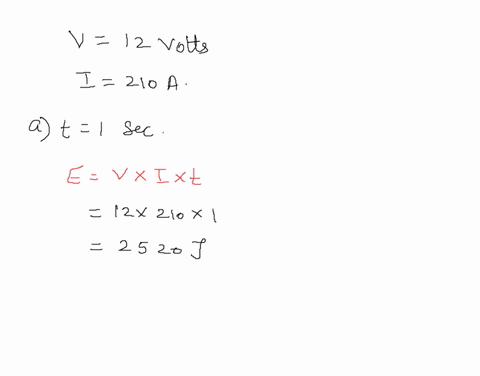 V = 12 Volts
I = 210 A.
a) t = 1 Sec.
E = V × I × t
= 12 × 210 × 1
= 2520 J